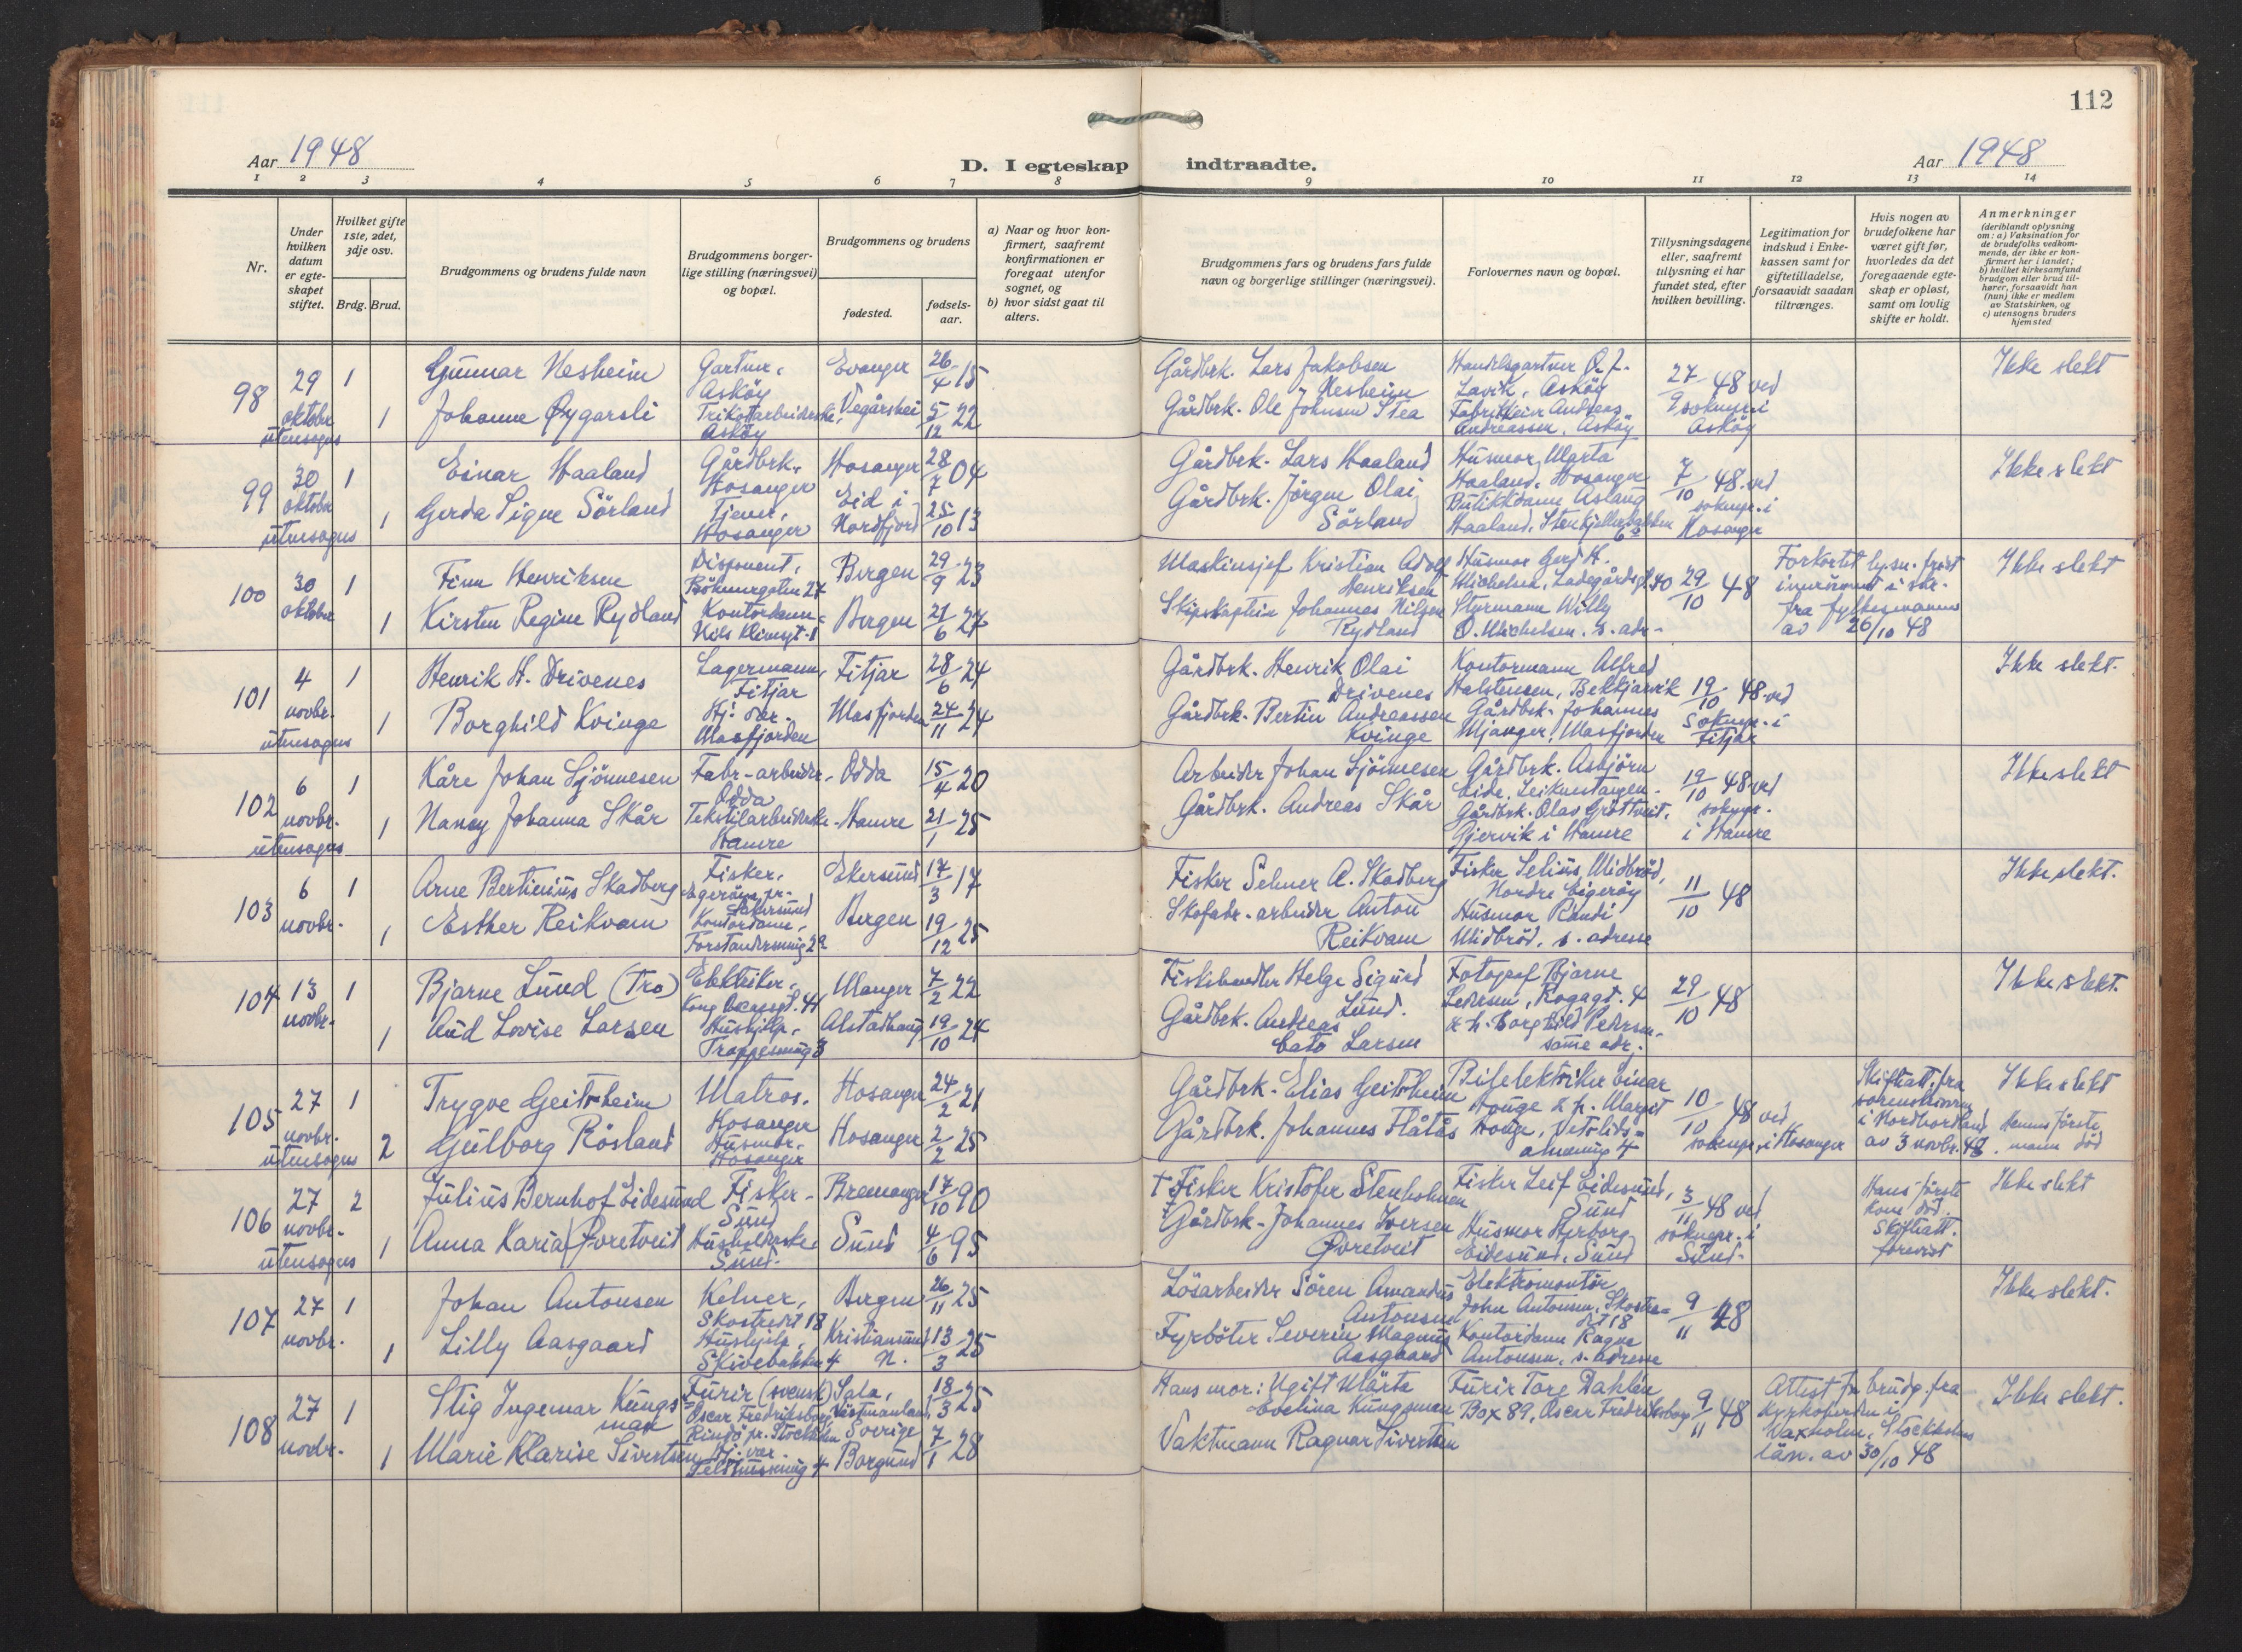 112
Aar 1948
D. I egteskap indtraadte.
Aar 1948
1 2 3 4 5 6 7 8 9 10 11 12 13 14
Nr.
Under hvilken datum er egteskapet stiftet.
Hvilket gifte 1ste, 2det, 3dje osv.
Brdg. Brud.
Brudgommens og brudens fulde navn
Brudgommens borgerlige stilling (næringsvei) og bopæl.
Brudgommens og brudens
fødested.
fødselsaar.
a) Naar og hvor konfirmert, saafremt konfirmationen er foregaat utenfor sognet, og
b) hvor sidst gaat til alters.
Brudgommens fars og brudens fars fulde navn og borgerlige stillinger (næringsvei).
Forlovernes navn og bopæl.
Tillysningsdagene eller, saafremt tillysning ei har fundet sted, efter hvilken bevilling.
Legitimation for indskud i Enkekassen samt for giftetilladelse, forsaavidt saadan tiltrænges.
Hvis nogen av brudefolkene har været gift før, hvorledes da det foregaaende egteskap er opløst, samt om lovlig skifte er holdt.
Anmerkninger (deriblandt oplysning om: a) Vaksination for de brudefolks vedkommende, der ikke er konfirmert her i landet; b) hvilket kirkesamfund brudgom eller brud tilhører, forsaavidt han (hun) ikke er medlem av Statskirken, og c) utensogns bruders hjemsted
98 29 oktober utensogns 1 1
Gunnar Nesheim
Johanne Øygarsli
Gartner, Asköy
Trikotarbeiderske, Asköy
Evanger 26/4 15
Vegårshei 5/12 22
Gårdbrk. Lars Jakobsen Nesheim
Gårdbrk. Ole Johnsen Stea
Handelsgartner O. J. Lavik, Asköy
Fabrikkeier Andreas Andreassen, Asköy
27/9 48 ved soknepr. i Asköy
Ikke slekt
99 30 oktober utensogns 1 1
Einar Haaland
Gerda Signe Sörland
Gårdbrk., Hosanger
Tjener, Hosanger
Hosanger 28/7 04
Eid i Nordfjord 25/10 13
Gårdbrk. Lars Haaland
Gårdbrk. Jörgen Olai Sörland
Husmor Marta Haaland, Hosanger
Butikkdame Aslaug Haaland, Stenkjellerbakken 6
7/10 48 ved soknepr. i Hosanger
Ikke slekt
100 30 oktober 1 1
Finn Henriksen
Kirsten Regine Rydland
Disponent, Böhmergaten 27
Kontordame, Nils Klimsgt. 1
Bergen 29/9 23
Bergen 21/6 27
Maskinsjef Kristian Adolf Henriksen
Skipskaptein Johannes Nilsen Rydland
Husmor Gerd H. Michelsen, Ladegårdsgt. 40
Styrmann Willy O. Michelsen, s. adr.
29/10 48
Forkortet lysn. frist innrömmet i skr. fra fylkesmannen av 26/10 48
Ikke slekt
101 4 novbr. utensogns 1 1
Henrik H. Drivenes
Borghild Kvinge
Lagermann, Fitjar
Hj. vær. Masfjorden
Fitjar 28/6 24
Masfjorden 24/11 24
Gårdbrk. Henrik Olai Drivenes
Gårdbrk. Bertin Andreassen Kvinge
Kontormann Alfred Halstensen, Bekkjarvik
Gårdbrk. Johannes Mjanger, Masfjorden
19/10 48 ved soknepr. i Fitjar
Ikke slekt.
102 6 novbr. utensogns 1 1
Kåre Johan Sjönnesen
Nancy Johanna Skår
Fabr-arbeider, Odda
Tekstilarbeiderske, Hamre
Odda 15/4 20
Hamre 21/1 25
Arbeider Johan Sjönnesen
Gårdbrk. Andreas Skår
Gårdbrk. Asbjörn Eide, Leiknestangen
Gårdbrk. Olav Gröttveit, Gjervik i Hamre
19/10 48 ved soknepr. i Hamre
Ikke slekt
103 6 novbr. 1 1
Arne Bertinius Skadberg
Esther Reikvam
Fisker, Egeröya pr. Ekersund
Kontordame, Forstandersmug 2a
Ekersund 17/3 17
Bergen 19/12 25
Fisker Selmer A. Skadberg
Skofabr.-arbeider Anton Reikvam
Fisker Selius Midbröd, Nordre Eigeröy
Husmor Randi Midbröd, s. adresse
11/10 48
Ikke slekt.
104 13 novbr. 1 1
Bjarne Lund (Tro)
Aud Lovise Larsen
Elektriker, Kong Oscarsgt. 41
Hushjelp, Trappesmug 3
Manger 7/2 22
Alstadhaug 19/10 24
Fiskehandler Helge Sigurd Lund.
Gårdbrk. Andreas Cato Larsen
Fotograf Bjarne Pedersen, Kogagt. 4
& h. Borghild Pedersen, samme adr.
29/10 48
Ikke slekt.
105 27 novbr. utensogns 1 2
Trygve Geitrheim
Gulborg Rösland
Matros, Hosanger
Husmor, Hosanger
Hosanger 24/2 21
Hosanger 2/2 25
Gårdbrk. Elias Geitrheim
Gårdbrk. Johannes Flåtås
Bilelektriker Einar Houge & h. Margit Houge, Vetrlidsalmening 4
10/10 48 ved soknepr. i Hosanger
Skifteatt. fra sorenskriveren i Nordhordland av 3 novbr. 48.
Ikke slekt
Hennes förste mann död
106 27 novbr. utensogns 2 1
Julius Bernhof Eidesund
Anna Karia Övretveit
Fisker, Sund
Husholderske, Sund.
Bremanger 17/10 90
Sund 4/6 95
† Fisker Kristofer Stenholmen
† Gårdbrk. Johannes Iversen Övretveit
Fisker Leif Eidesund, Sund
Husmor Herborg Eidesund, Sund
3/11 48 ved soknepr. i Sund.
Hans förste kone död. Skifteatt. forevist
Ikke slekt
107 27 novbr. 1 1
Johan Antonsen
Lilly Aasgaard
Kelner, Skostredet 18
Hushjelp, Skivebakken 4
Bergen 26/11 25
Kristiansund N. 13/3 25
Lösarbeider Sören Amandus Antonsen
Fyrböter Severin Magnus Aasgaard
Elektromontör John Antonsen, Skostredet 18
Kontordame Ragna Antonsen, s. adresse
9/11 48
Ikke slekt.
108 27 novbr. 1 1
Stig Ingemar Kungsman
Marie Klarise Sivertsen
Furir (svensk) Oscar Fredriksborg, Rindö pr. Stockholm
Hj. vær. 4
Sala, Västmanland, Sverige 18/3 25
Borgund 7/1 28
Hans mor: Ugift Märta Evelina Kungsman
Vaktmann Ragnar Sivertsen
Furir Tore Dahlén Box 89, Oscar Fredriksborg
9/11 48
Attest for brudg. fra Kyrkoherden i Vaxholm, Stockholms län. av 30/10 48
Ikke slekt.